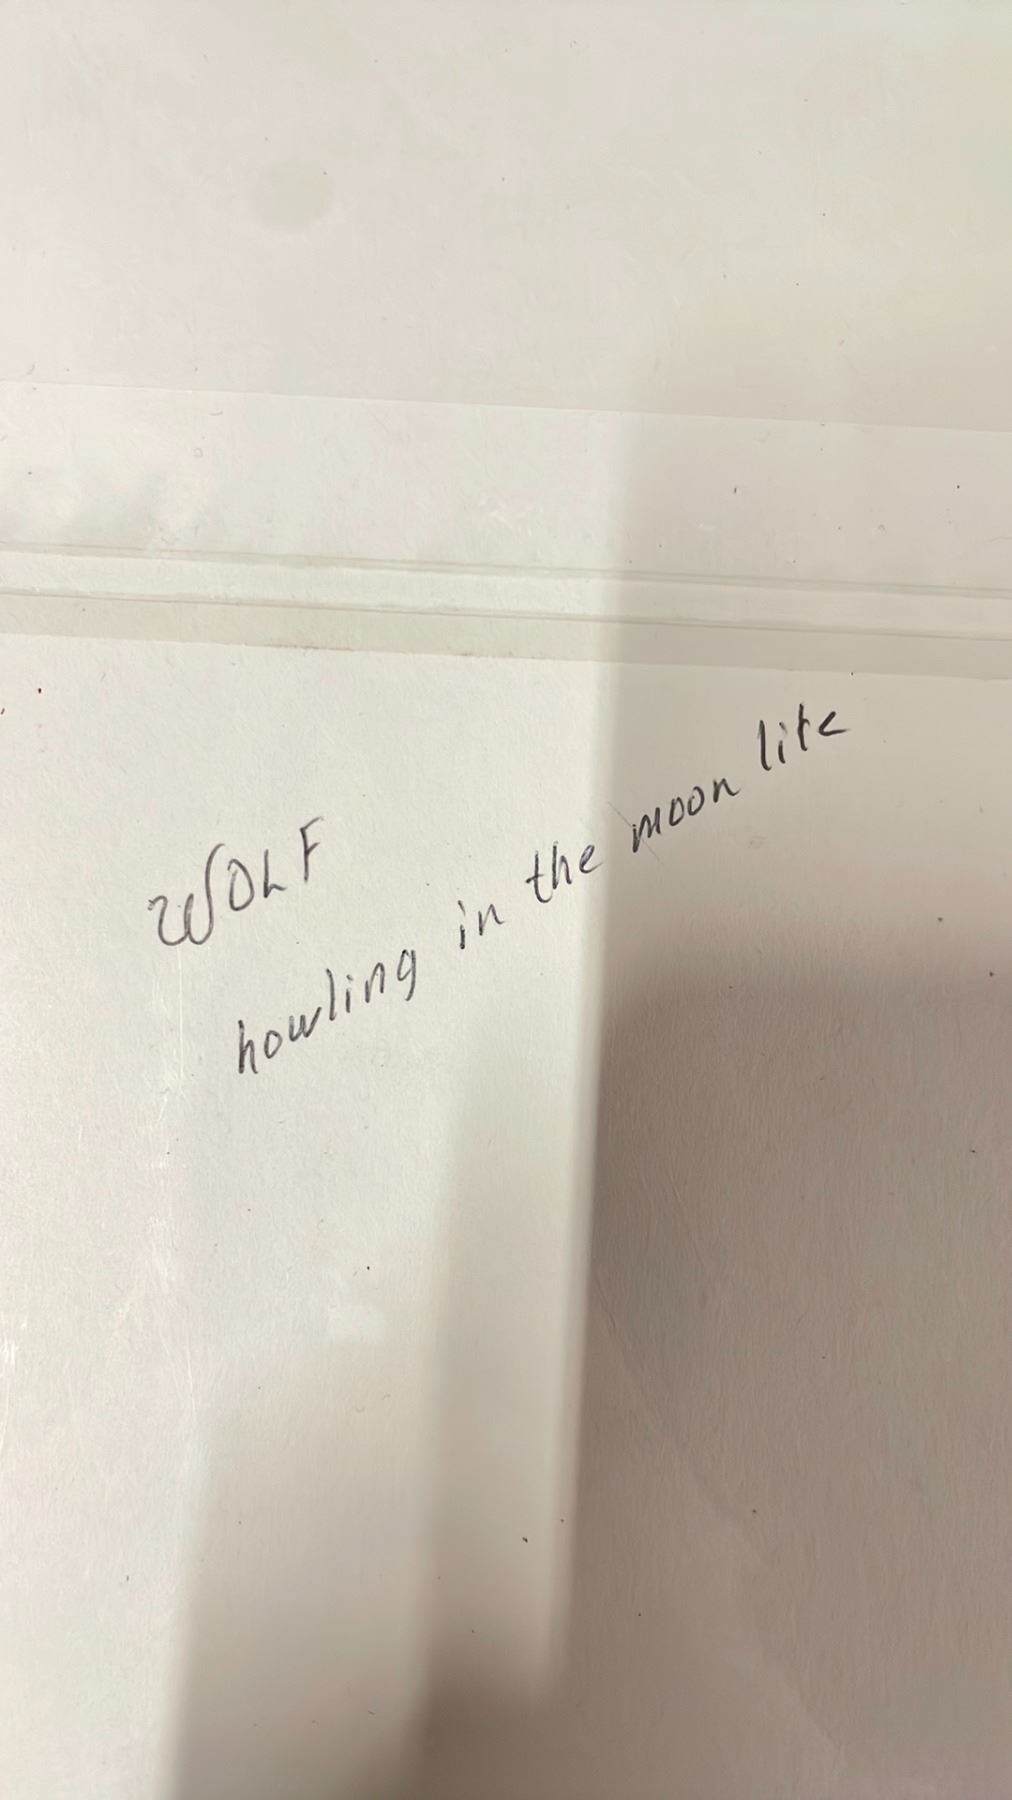 WOLF
howling in the moon lite